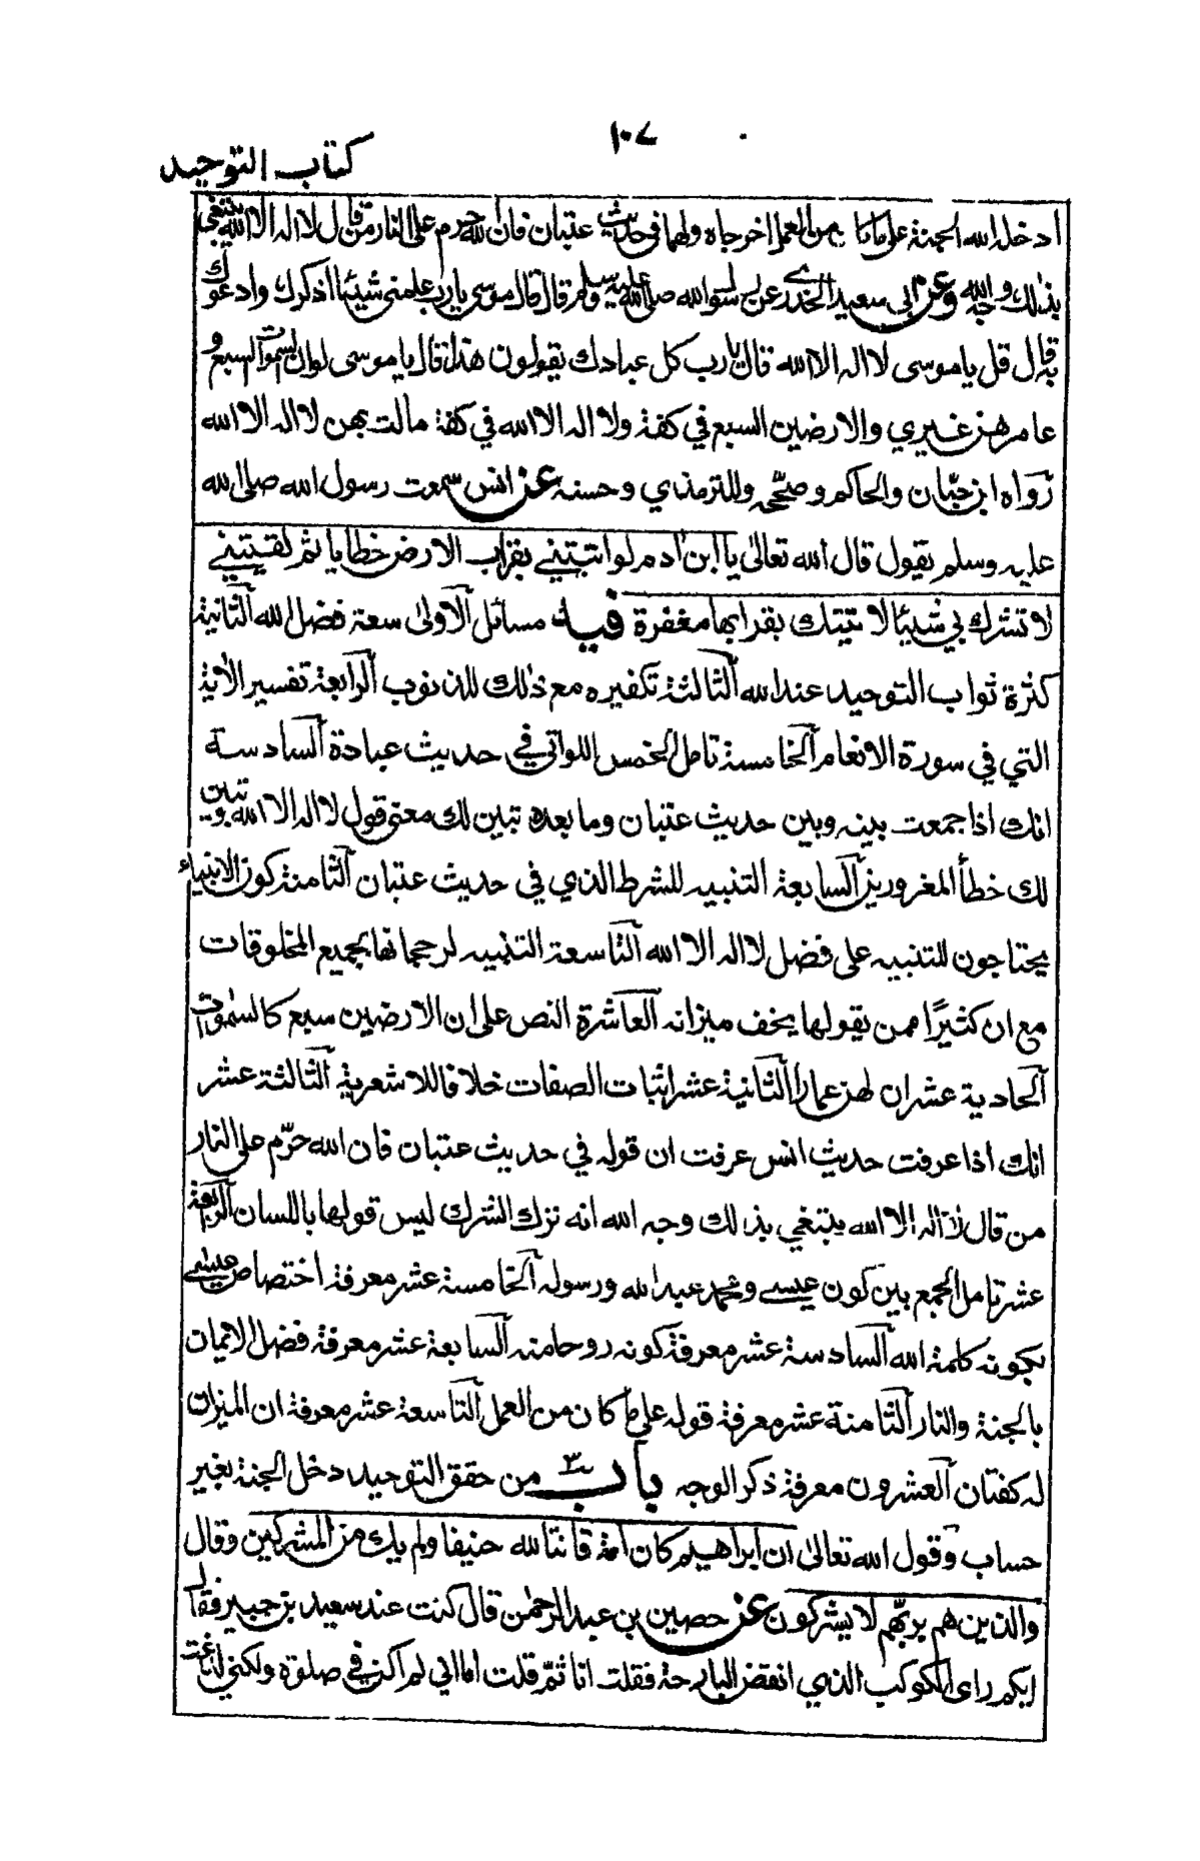 ١٠٧
كتاب التوحيد
ادخله الله الجنة على ما كان من العمل اخرجاه ولهما في حديث عتبان فان الله حرم على النار من قال لا اله الا الله يبتغي
بذلك وجه الله وعن ابي سعيد الخدري عن رسول الله صلى الله عليه وسلم قال قال موسى يا رب علمني شيئا اذكرك وادعوك
به قال قل يا موسى لا اله الا الله قال يا رب كل عبادك يقولون هذا قال يا موسى لو ان السموات السبع و
عامرهن غيري والارضين السبع في كفة ولا اله الا الله في كفة مالت بهن لا اله الا الله
رواه ابن حبان والحاكم وصححه وللترمذي وحسنه عن انس سمعت رسول الله صلى الله
عليه وسلم يقول قال الله تعالى يا ابن ادم لو اتيتني بقراب الارض خطايا ثم لقيتني
لا تشرك بي شيئا لا تيتك بقرابها مغفرة فيه مسائل الاولى سعة فضل الله الثانية
كثرة ثواب التوحيد عند الله الثالثة تكفيره مع ذلك للذنوب الرابعة تفسير الاية
التي في سورة الانعام الخامسة تامل الخمس اللواتي في حديث عبادة السادسة
انك اذا جمعت بينه وبين حديث عتبان وما بعده تبين لك معنى قول لا اله الا الله وتبين
لك خطأ المغرورين السابعة التنبيه للشرط الذي في حديث عتبان الثامنة كون الانبياء
يحتاجون للتنبيه على فضل لا اله الا الله التاسعة التنبيه لرجحانها بجميع المخلوقات
مع ان كثيرًا ممن يقولها يخف ميزانه العاشرة النص على ان الارضين سبع كالسموات
الحادية عشر ان لهن عمارا الثانية عشر اثبات الصفات خلافا للاشعرية الثالثة عشر
انك اذا عرفت حديث انس عرفت ان قوله في حديث عتبان فان الله حرّم على النار
من قال لا اله الا الله يبتغي بذلك وجه الله انه ترك الشرك ليس قولها باللسان الرابعة
عشر تامل الجمع بين كون عيسى ومحمد عبد الله ورسوله الخامسة عشر معرفة اختصاص عيسى
بكونه كلمة الله السادسة عشر معرفة كونه روحا منه السابعة عشر معرفة فضل الايمان
بالجنة والنار الثامنة عشر معرفة قوله على ما كان من العمل التاسعة عشر معرفة ان الميزان
له كفتان العشرون معرفة ذكر الوجه باب من حقق التوحيد دخل الجنة بغير
حساب وقول الله تعالى ان ابراهيم كان امة قانتا لله حنيفا ولم يك من المشركين وقال
والذين هم بربهم لا يشركون عن حصين بن عبد الرحمن قال كنت عند سعيد بن جبير فقال
ايكم راى الكوكب الذي انقض البارحة فقلت انا ثمّ قلت اما اني لم اكن في صلوة ولكني لدغت